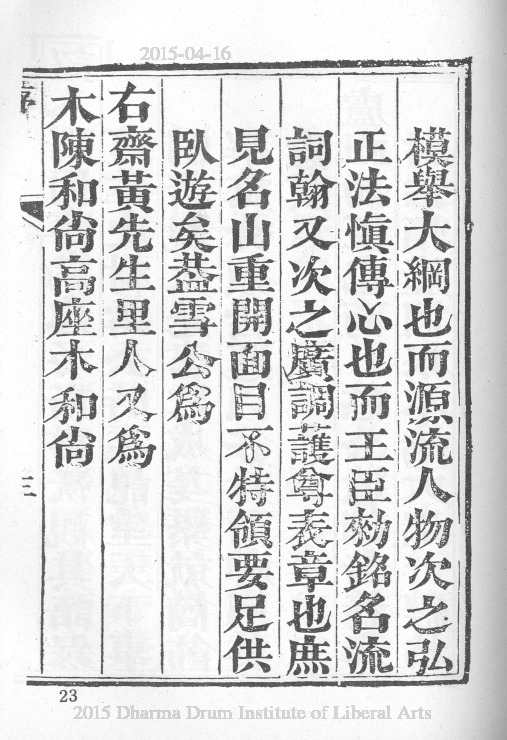 2015-04-16
模舉大綱也而源流人物次之弘
正法慎傳心也而王臣勑銘名流
詞翰又次之廣調護尊表章也庶
見名山重開面目不特領要足供
臥遊矣葢雪公為
右齋黃先生里人又為
木陳和尚高座木和尚
三
23
2015 Dharma Drum Institute of Liberal Arts